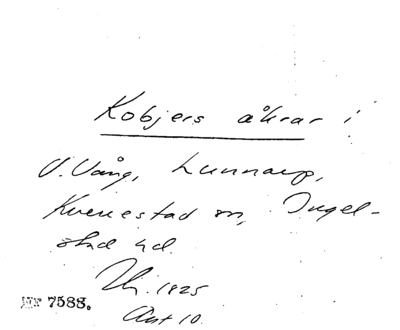 Kobjers åkrar i
V. Vång, Lunnarp,
Kverrestad sn, Ingel-
stad hd.
1825
Akt 10.
Nr 7588.